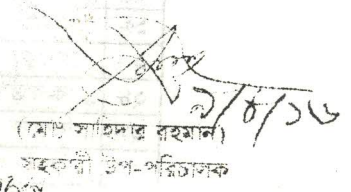 ৯/৫/১৬
(মোঃ সাহিদার রহমান)
সহকারী উপ-পরিচালক